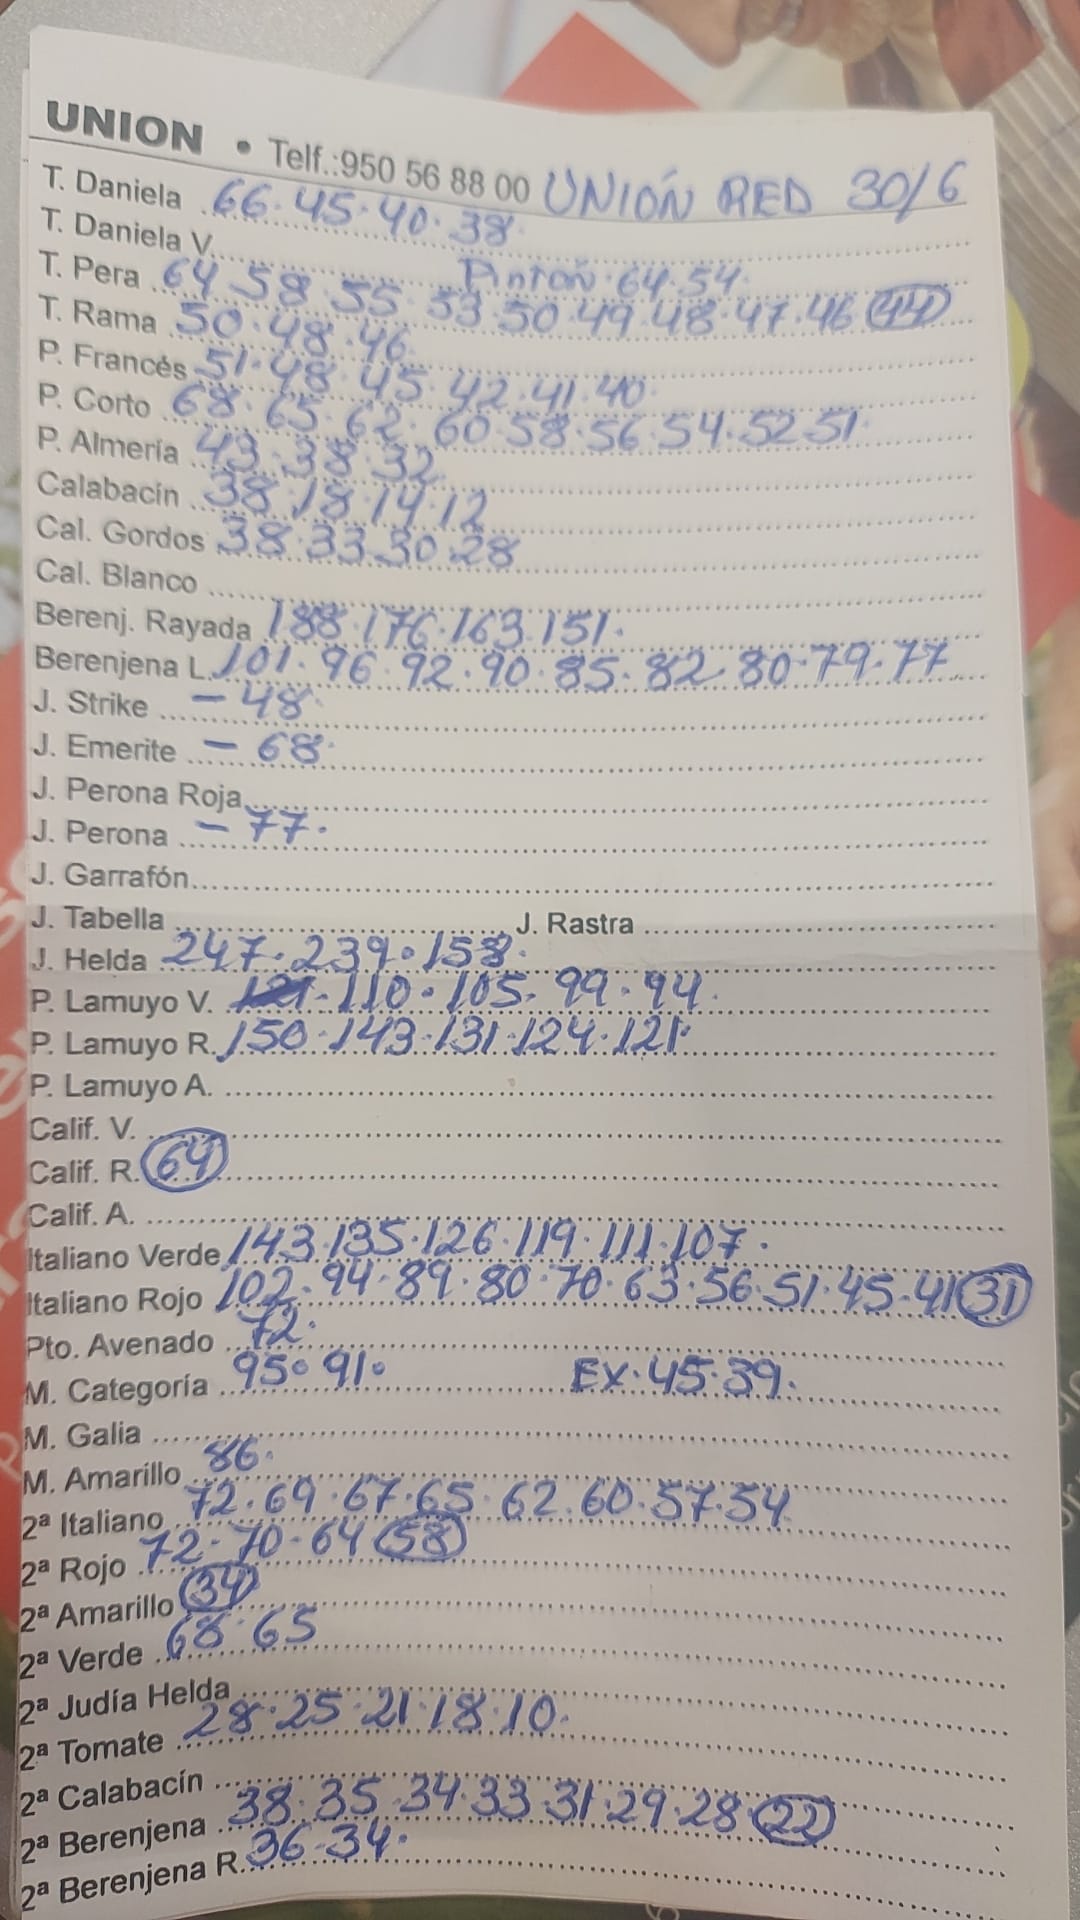 UNION • Telf.:950 56 88 00 UNIÓN RED 30/6
T. Daniela 66·45·40·38
T. Daniela V. Pintón·64·54·
T. Pera 64·58·55·53·50·49·48·47·46 (44)
T. Rama 50·48·46
P. Francés 51·48·45·42·41·40·
P. Corto 68·65·62·60·58·56·54·52·51·
P. Almería 43·38·32
Calabacín 38·18·14·12
Cal. Gordos 38·33·30·28
Cal. Blanco
Berenj. Rayada 188·176·163·151·
Berenjena L. 101·96·92·90·85·82·80·79·77
J. Strike – 48·
J. Emerite – 68·
J. Perona Roja
J. Perona – 77·
J. Garrafón
J. Tabella J. Rastra
J. Helda 247·239·158·
P. Lamuyo V. 110·105·99·94·
P. Lamuyo R. 150·143·131·124·121·
P. Lamuyo A.
Calif. V.
Calif. R. (64)
Calif. A.
Italiano Verde 143·135·126·119·111·107·
Italiano Rojo 102·94·89·80·70·63·56·51·45·41 (31)
Pto. Avenado 72·
M. Categoría 95·91· EX·45·39·
M. Galia
M. Amarillo 86·
2ª Italiano 72·69·67·65·62·60·57·54
2ª Rojo 72·70·64 (58)
2ª Amarillo (34)
2ª Verde 68·65
2ª Judía Helda
2ª Tomate 28·25·21·18·10·
2ª Calabacín
2ª Berenjena 38·35·34·33·31·29·28 (22)
2ª Berenjena R. 36·34·